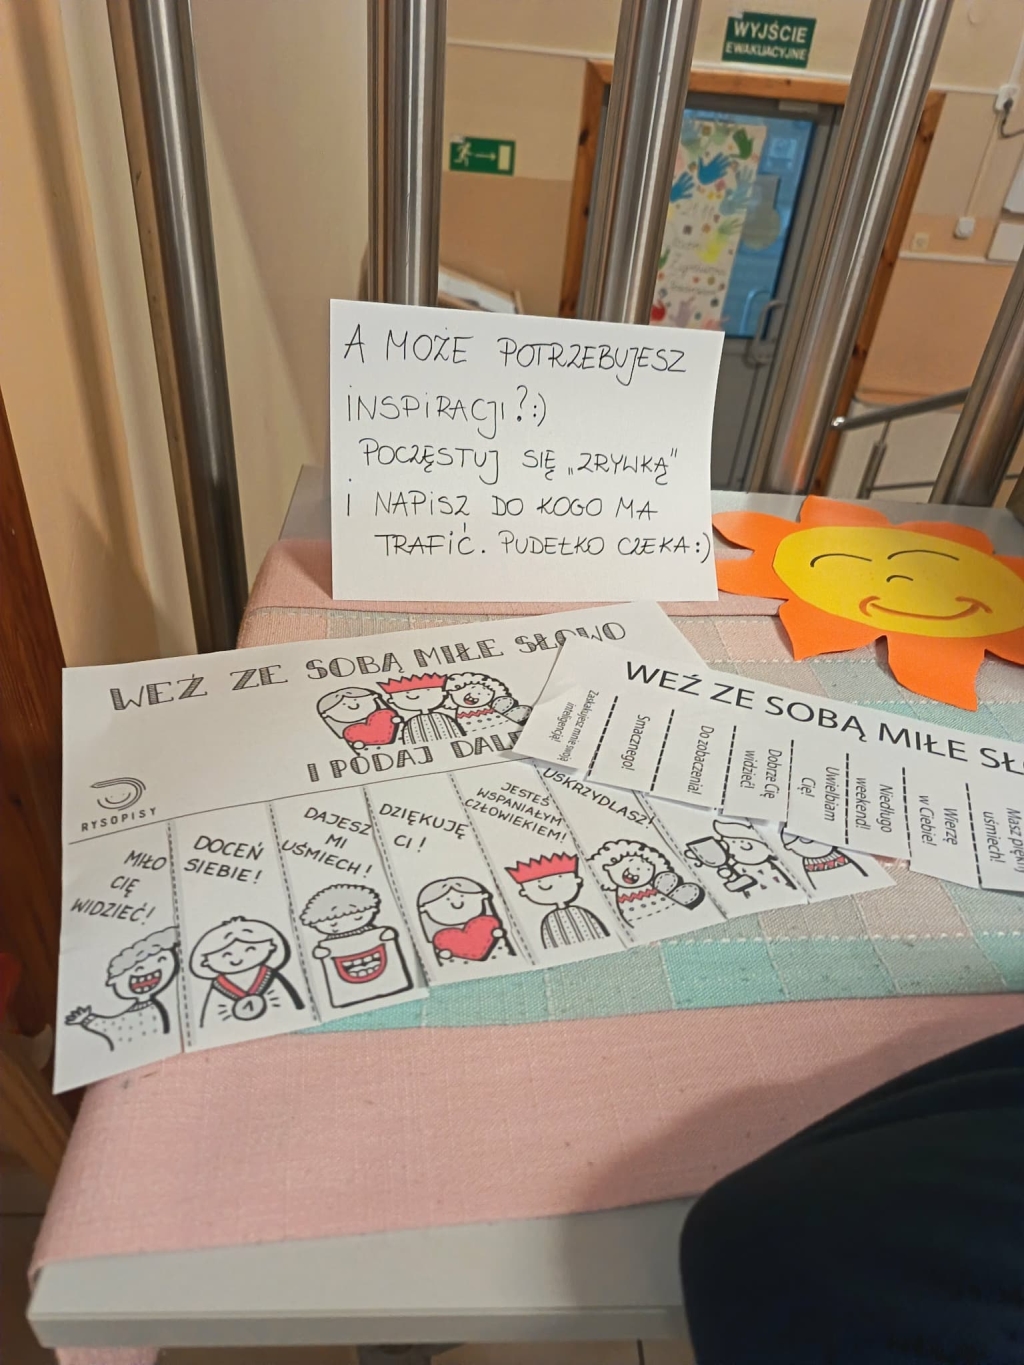 WYJŚCIE
EWAKUACYJNE
A MOŻE POTRZEBUJESZ
INSPIRACJI? :)
POCZĘSTUJ SIĘ „ZRYWKĄ"
I NAPISZ DO KOGO MA
TRAFIĆ. PUDEŁKO CZEKA :)
WEŹ ZE SOBĄ MIŁE SŁOWO
I PODAJ
RYSOPISY
MIŁO
CIĘ
WIDZIEĆ!
DOCEŃ
SIEBIE!
DAJESZ
MI
UŚMIECH!
DZIĘKUJĘ
CI!
JESTEŚ
WSPANIAŁYM
CZŁOWIEKIEM!
USKRZYDLASZ!
1
WEŹ ZE SOBĄ MIŁE
Zaskakujesz mnie swoją
inteligencją!
Smacznego!
Do zobaczenia!
Dobrze Cię
widzieć!
Uwielbiam
Cię!
Niedługo
weekend!
Wierzę
w Ciebie!
Masz piękny
uśmiech!